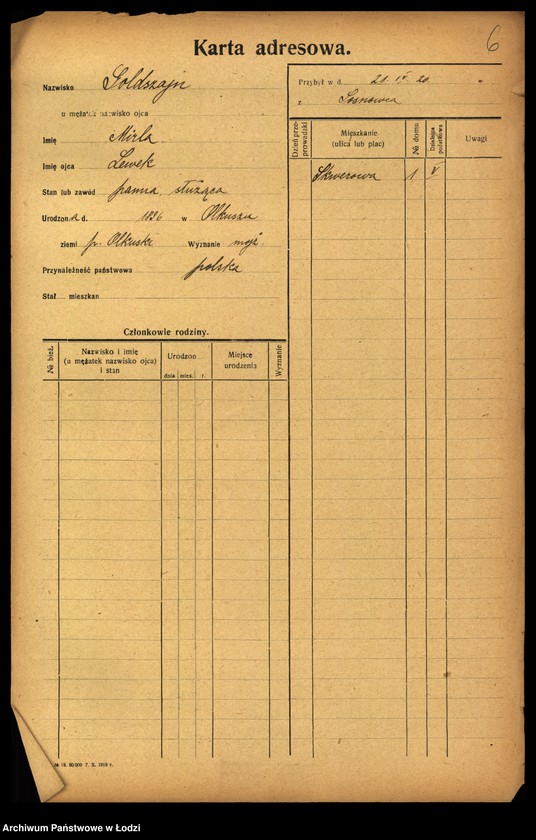 6
Karta adresowa.
Nazwisko Goldszajn
u mężatek nazwisko ojca
Imię Mirla
Imię ojca Lewek
Stan lub zawód panna, służąca
Urodzona d. 1886 w Olkuszu
ziemi p. Olkuski Wyznanie mojż.
Przynależność państwowa polska
Stał mieszkan
Przybył w d. 21. IV. 20
z Sosnowca
Dzień przeprowadzki
Mieszkanie
(ulica lub plac)
№ domu
Uwagi
Skwerowa 1 V
Członkowie rodziny.
№ bież.
Nazwisko i imię
(u mężatek nazwisko ojca)
i stan
Urodzon
dnia mies. r.
Miejsce
urodzenia
Wyznanie
№ 18. 80000 7. X. 1919 r.
Archiwum Państwowe w Łodzi